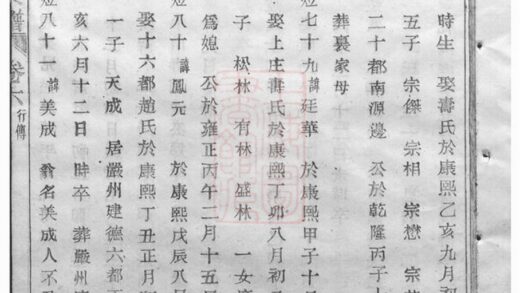 時生 娶壽氏於康熙乙亥九月初
五子 宗傑 宗相 宗懋 宗
二十都南源邊 公於乾隆丙子十
葬裏家母
七十九 諱廷華 於康熙甲子十
娶上庄壽氏於康熙丁卯八月初
子 松林 有林 盛林 一女
爲媳 公於雍正丙午二月十五
八十 諱鳳元 於康熙戊辰八
娶十六都趙氏於康熙丁丑正月
一子 天成 居嚴州建德六都
亥六月十二日 時卒 葬嚴州
八十一 諱美成 翁名美成人不
譜 卷六 行傳